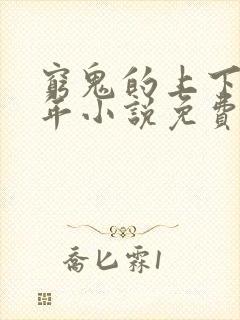 窮鬼的上下
年小說免費
喬匕霖1